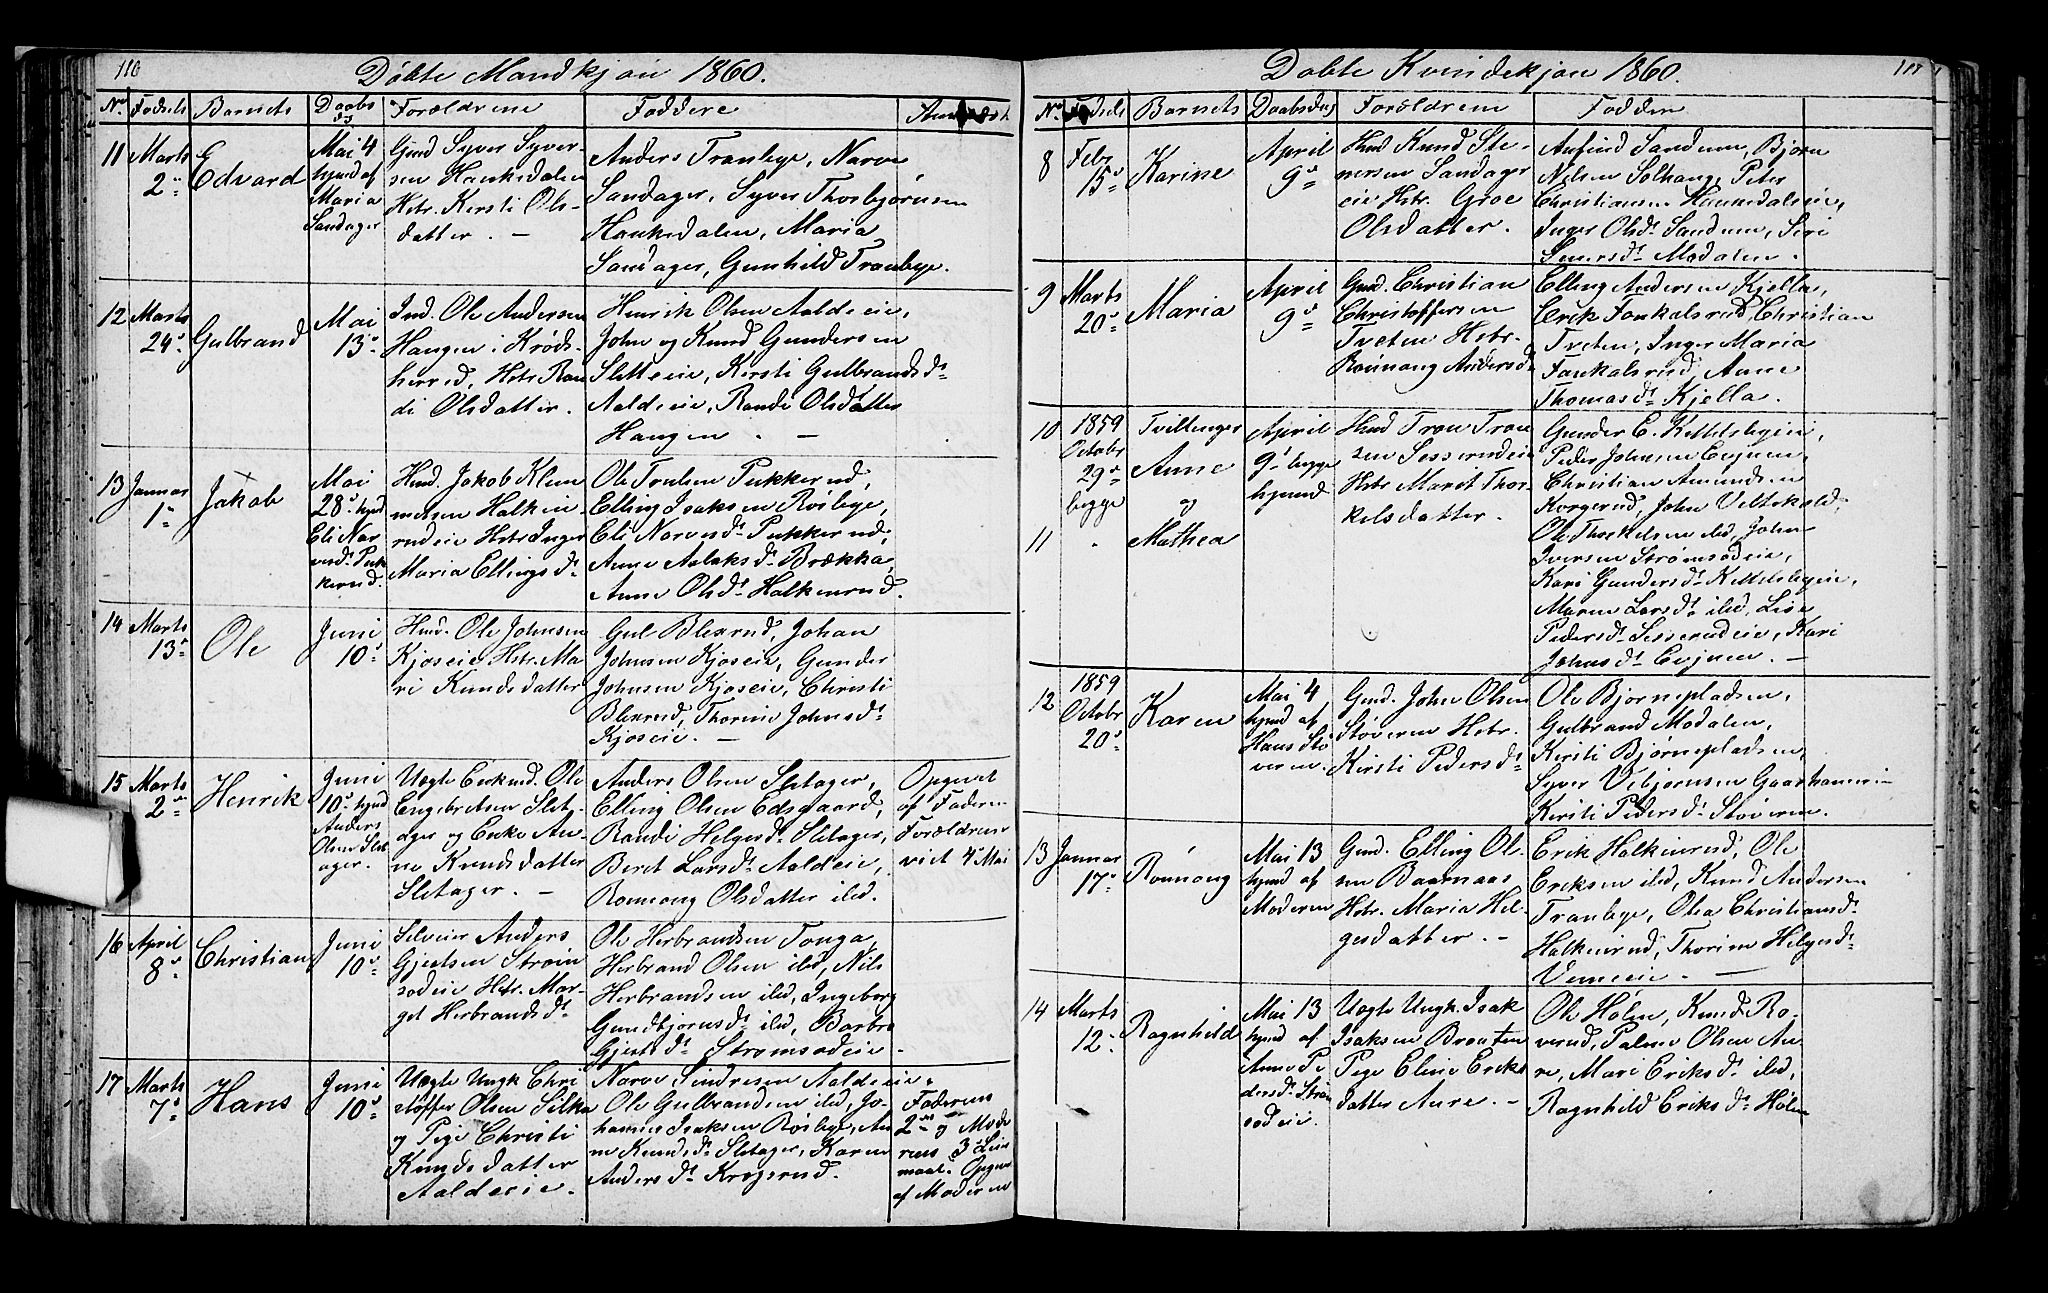 116
Döbte Mandkjøn 1860.
No. Fødsels Barnets Daabs dg Forældrene Faddere Anmærkn.
11 Marts 2den Edvard
Mai 4 hjmd af Maria Sandager
Gmd Syver Syver-
sen Haukedalen
Hstr. Kersti Ols-
datter. —
Anders Tranbye, Narve
Sandager, Syver Thorbjørnsen
Haukedalen, Maria
Sandager, Gunhild Tranbye.
12 Marts 24de Gulbrand
Mai 13de
Ind. Ole Andersen
Haugen i Krøds-
herred, Hstr. Ran
di Olsdatter.
Henrik Olsen Aaldeeie,
John og Knud Gundersen
Sletteeie, Kersti Gulbrandsdr
Aaldeeie, Rande Olsdatter
Haugen. —
13 Januar 1ste Jakob
Mai 28de hjmd Eli Nar vesdr. Puk kerud.
Husd. Jakob Klem
metsen Halkin-
rudeie Hstr. Inger
Maria Ellingsdr
Ole Trulsen Pukkerud,
Elling Isaksen Rösbye,
Eli Narvesdr Pukkerud,
Anne Aslaksdr Brækka,
Anne Olsdr Halkinrud.
14 Marts 13de Ole
Juni 10de
Husd. Ole Johnsen
Kjoseie Hstr. Ma
ri Knudsdatter
Gul Blexrud, Johan
Johnsen Kjoseie, Gunder
Johnsen Kjoseie, Christi
Blexrud, Thorine Johnsdr
Kjoseie. —
15 Marts 2den Henrik
Juni 10de hjmd Anders Olsen Slet ager.
Uægte Enkmd. Ole
Engebretsen Slet-
ager og Enke An
ne Knudsdatter
Sletager. —
Anders Olsen Sletager,
Elling Olsen Edsgaard,
Rande Helgesdr Sletager,
Beret Larsdr Aaldeie,
Ronnong Olsdatter ibd.
Opgivet
af Faderen
Forældrene
viet 4de Mai
16 April 8de Christian
Juni 10de
Selveier Anders
Gjertsen Strøm
sodeie Hstr. Mar-
git Herbrandsdr
Ole Herbrandsen Tonga,
Herbrand Olsen ibd, Nils
Herbrandsen ibd, Ingeborg
Gundbjørnsdr ibd, Barbro
Gjertsdr Stromsodeie.
17 Marts 7de Hans
Juni 10de
Uægte Ungk Chri
stoffer Olsen Silka
og Pige Christi
Knudsdatter
Aaldeeie.
Narve Sindresen Aaldeeie,
Ole Gulbrandsen ibd, Jo-
hannes Isaksen Røsbye, An
ne Knudsdr Sletager, Karen
Andersdr Krogsrud.
Faderens
2det og Mode
rens 3de Leier
maal. Opgivet
af Moderen
117
Dobte Kvindekjøn 1860.
No. Fødsels Barnets Daabsdag Forældrene Faddere
8 Febr 15de Karine
April 9de
Husd Knud Ste-
nersen Sandager
eie Hstr. Groe
Olsdatter.
Anfind Sandum, Bjørn
Nelsen Solhaug, Peter
Christiansen Haukedaleie,
Inger Olsdr Sandum, Siri
Stenersdr Modalen.
9 Marts 20de Maria
April 9de
Gmd. Christian
Christoffersen
Tveten Hstr.
Rønnong Andersdr
Elling Andersen Kjella,
Erik Faukalsrud, Christian
Tveten, Inger Maria
Faukalsrud, Anne
Thomasdr Kjella.
10 1859 October 29de begge
Tvillinger Anne og
11 Mathea
April 9de begge hjmd
Husd Tron Tron
sen Sesserudeie
Hstr Marit Thor-
kelsdatter.
Gunder E. Kittelsbyeie,
Peder Johnsen Evjuen,
Christian Amundsen
Korgerud, John Veltskold,
Ole Thorkelsen ibd, John
Iversen Strømsodeie,
Kari Gundersdr Kittelsbyeie,
Maren Larsdr ibd, Lise
Pedersdr Sesserudeie, Kari
Johnsdr Evjuen. —
12 1859 October 20de Karen
Mai 4 hjmd af Hans Stø veren.
Gmd. John Olsen
Støveren Hstr.
Kirsti Pedersdr
Ole Bjørnepladsen,
Gulbrand Modalen,
Kirsti Bjørnepladsen,
Syver Vebjørnsen Gaarhameri
Kirsti Pedersdr Støveren.
13 Januar 17de Rønnong
Mai 13 hjmd af Moderen
Gmd. Elling Ol-
sen Baarnaas
Hstr. Maria Hel-
gesdatter. —
Erik Halkinrud, Ole
Eriksen ibd, Knud Andersen
Tranbye, Olea Christiansdr
Halkinrud, Thorine Helgesdr
Vemeie. —
14 Marts 12te Ragnhild
Mai 13 hjmd af Anne Pe dersdr. Strøm sodeie.
Uægte Ungk. Isak
Isaksen Braaten
Pige Eline Eriks
datter Aure. —
Ole Holm, Knud Ro-
verud, Palme Olsen Au
re, Mari Eriksdr ibd,
Ragnhild Eriksdr Holm